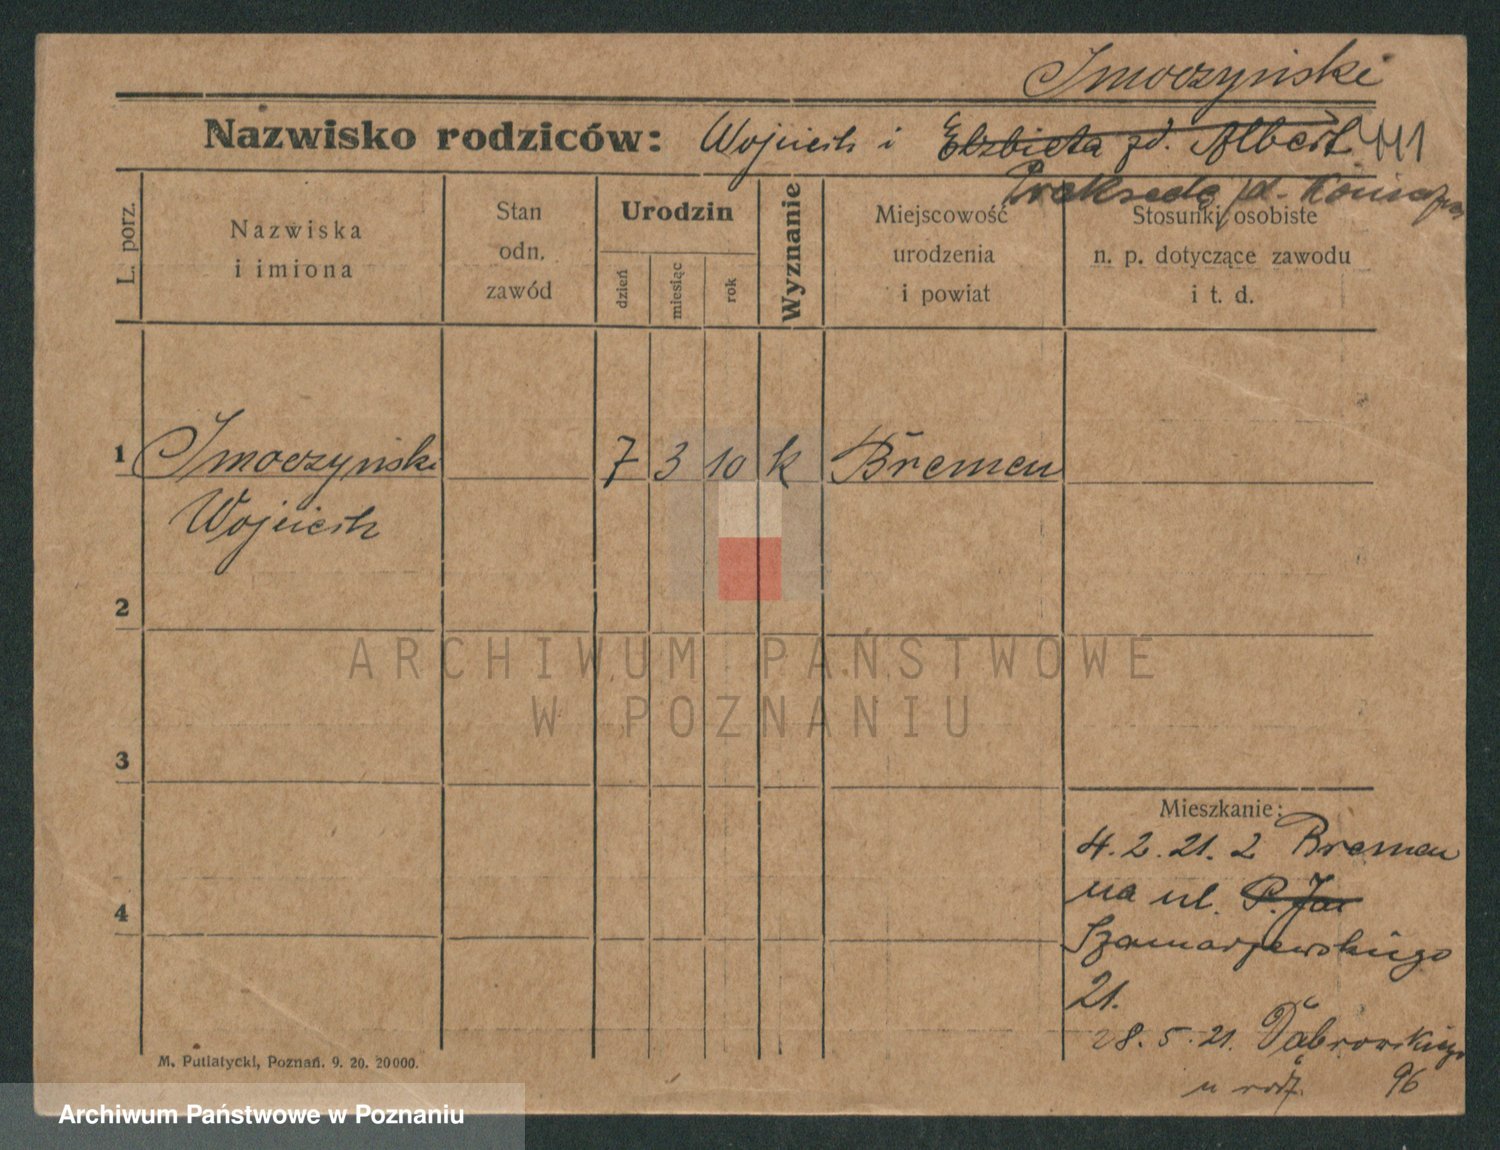 Smoczyński
Nazwisko rodziców: Wojciech i Elzbieta zd. Albert
Prakseda zd.
L. porz.
Nazwiska
i imiona
Stan
odn.
zawód
Urodzin
dzień
miesiąc
rok
Wyznanie
Miejscowość
urodzenia
i powiat
Stosunki osobiste
n. p. dotyczące zawodu
i t. d.
1 Smoczyński 7 3 10 k Bremen
Wojciech
2
3
4
Mieszkanie:
4. 2. 21. z Bremen
na ul. P. Jar
Szamarzewskiego
21.
28. 5. 21. Dąbrowskiego
u rodz. 96
M. Putiatycki, Poznań. 9. 20. 20000.
ARCHIWUM PAŃSTWOWE
W POZNANIU
Archiwum Państwowe w Poznaniu